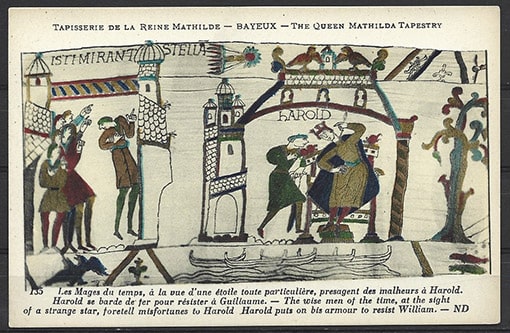 TAPISSERIE DE LA REINE MATHILDE — BAYEUX — THE QUEEN MATHILDA TAPESTRY
ISTI MIRANT STELLA
HAROLD
135 Les Mages du temps, à la vue d'une étoile toute particulière, presagent des malheurs à Harold.
Harold se barde de fer pour résister à Guillaume. — The wise men of the time, at the sight
of a strange star, foretell misfortunes to Harold Harold puts on his armour to resist William. — ND